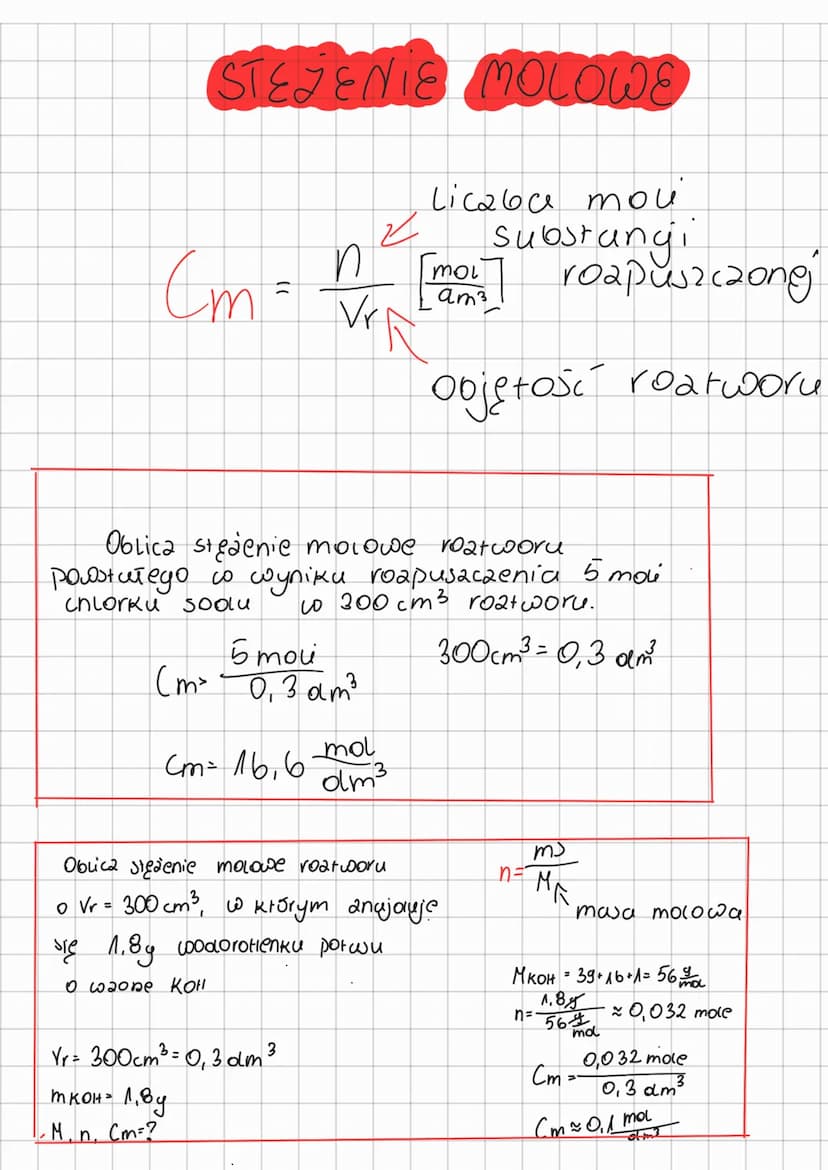 STĘŻENIE MOLOWE
liczba moli
substancji
rozpuszczonej
Cm = n/Vr [mol/dm³]
objętość roztworu
Oblicz stężenie molowe roztworu
powstałego w wyniku rozpuszczenia 5 moli
chlorku sodu w 300 cm³ roztworu.
Cm = 5 moli/0,3 dm³
300cm³ = 0,3 dm³
Cm = 16,6 mol/dm³
Oblicz stężenie molowe roztworu
o Vr = 300 cm³, w którym znajduje
się 1,8g wodorotlenku potasu
o wzorze KOH
Vr = 300cm³ = 0,3 dm³
mKOH = 1,8g
M, n, Cm=?
n = ms/M
masa molowa
MKOH = 39+16+1 = 56 g/mol
n = 1,8g/56 g/mol ≈ 0,032 mole
Cm = 0,032 mole/0,3 dm³
Cm ≈ 0,1 mol/dm³